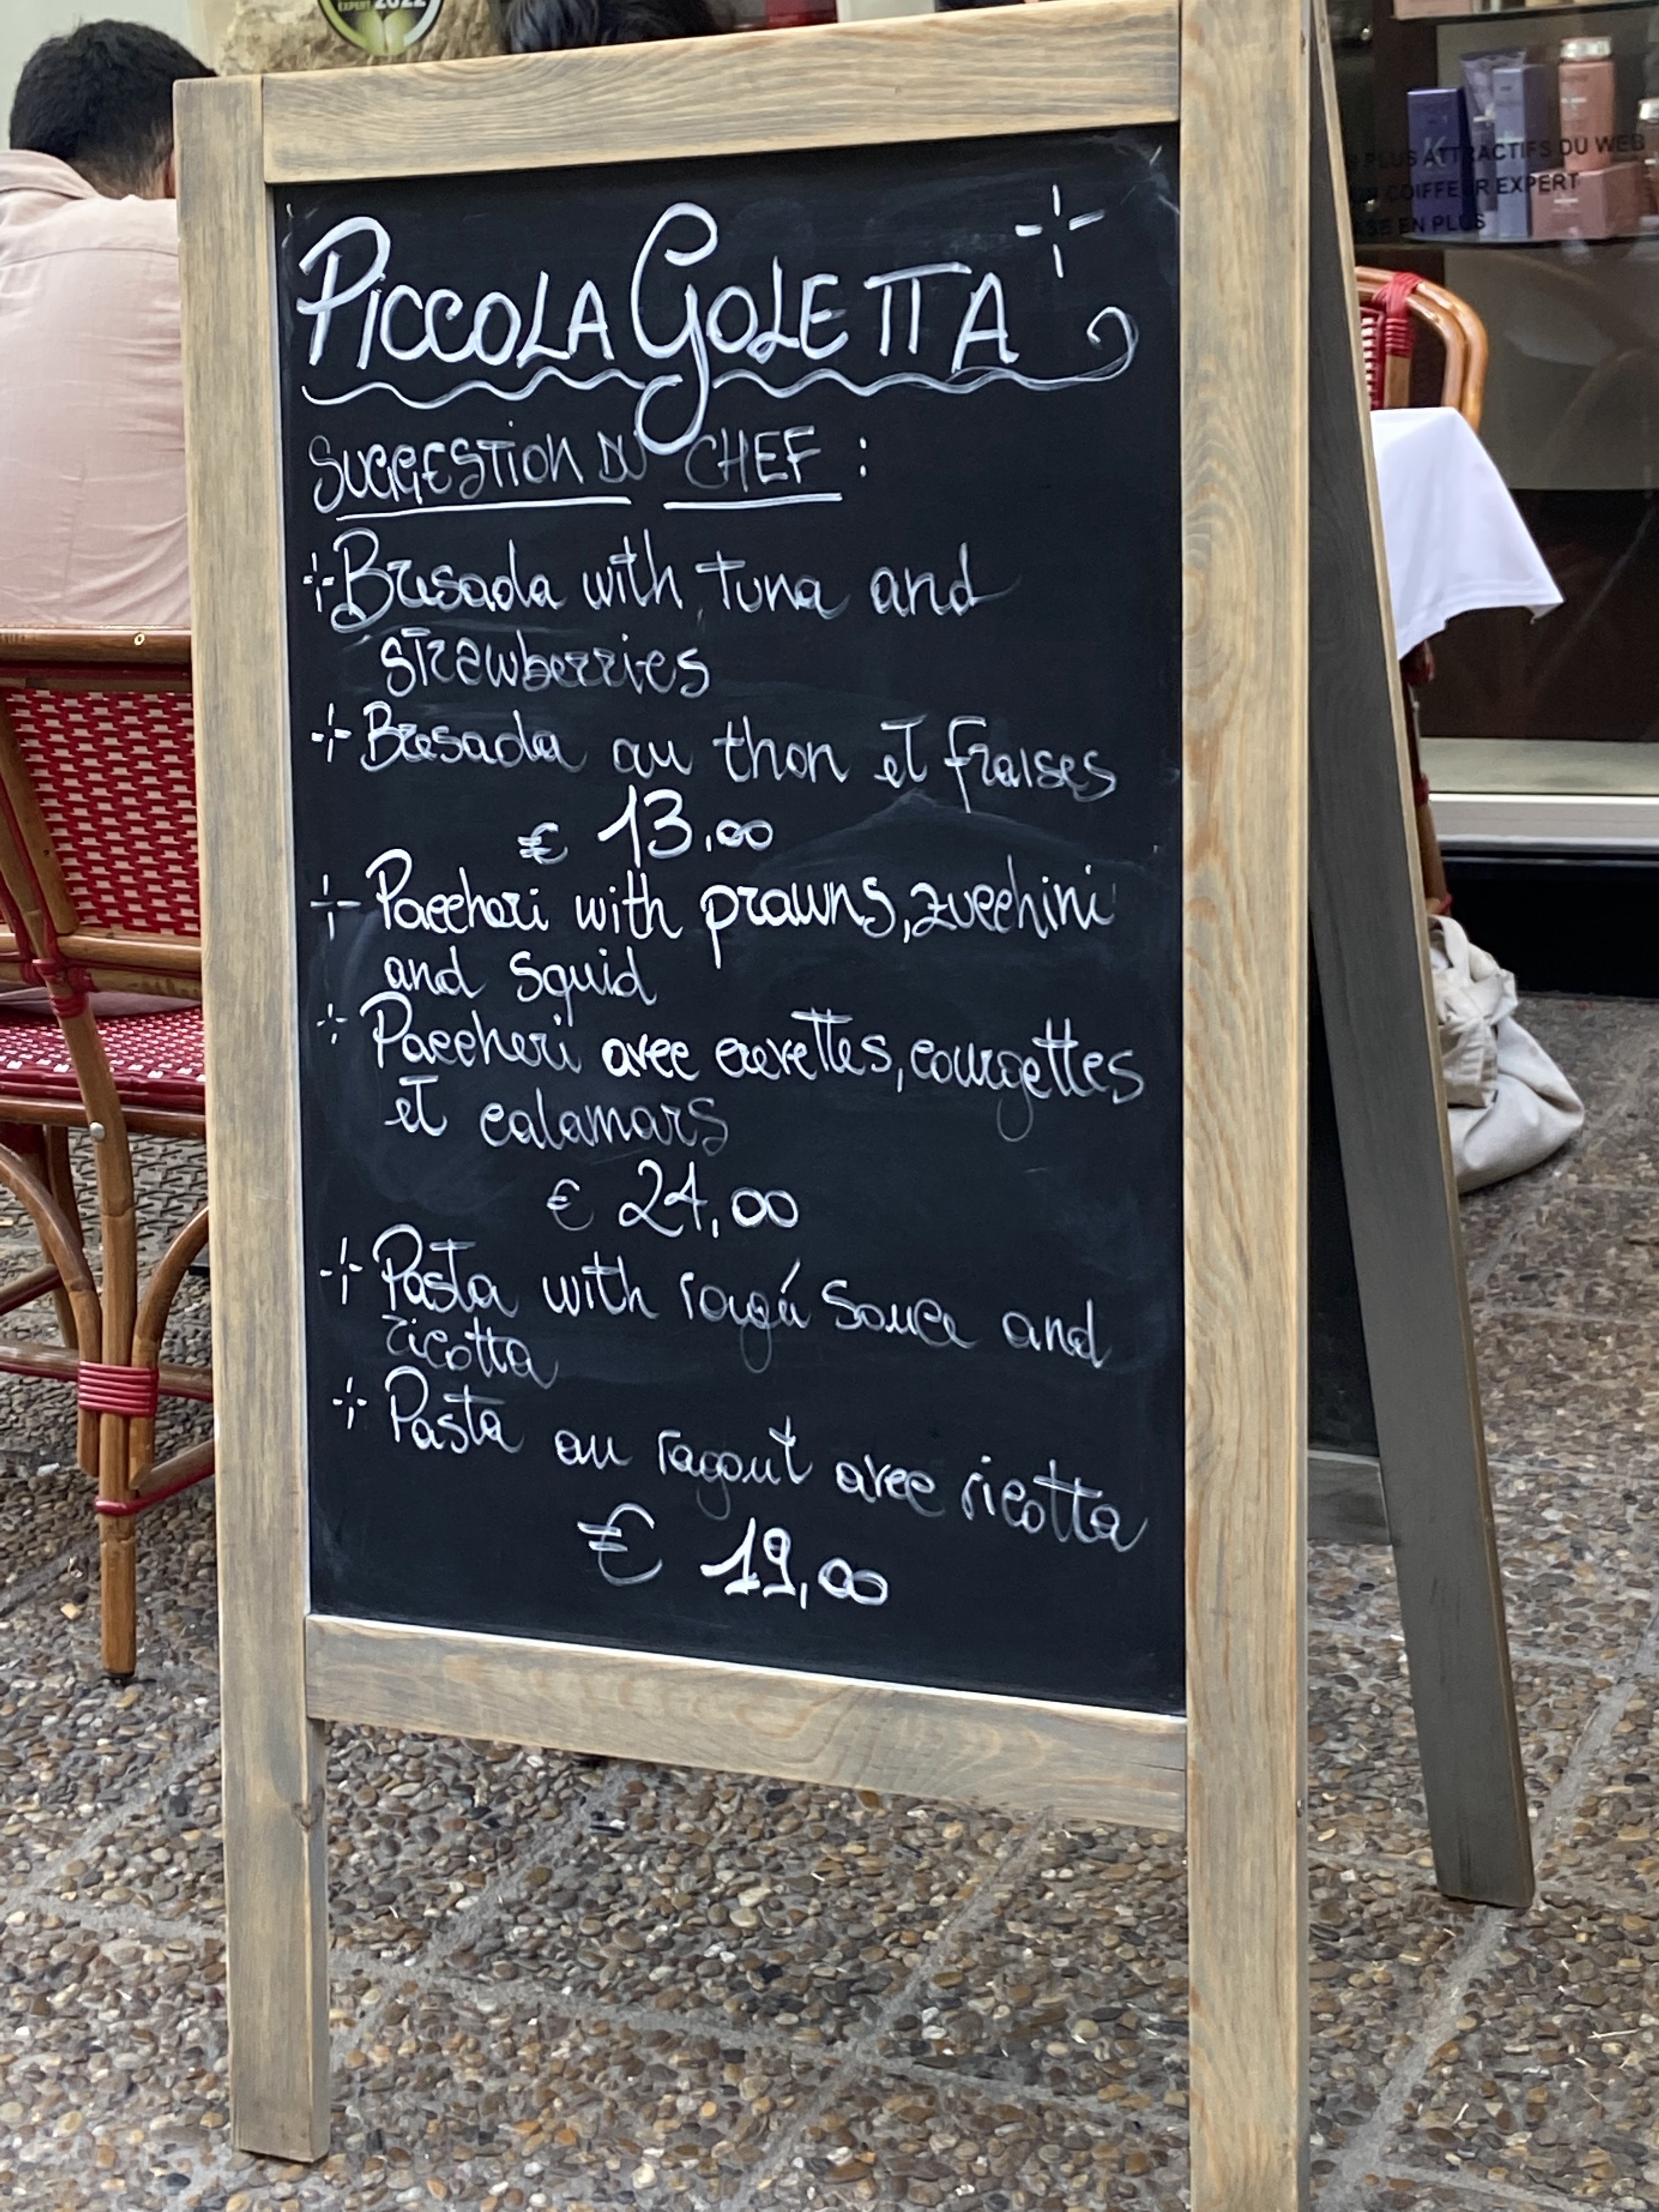 EXPERT 2022
PICCOLA GOLETTA
SUGGESTION DU CHEF :
Bresaola with tuna and
strawberries
Bresaola au thon et fraises
€ 13,00
Paccheri with prawns, zucchini
and squid
Paccheri avec crevettes, courgettes
et calamars
€ 24,00
Pasta with ragú sauce and
ricotta
Pasta au ragout avec ricotta
€ 19,00
PLUS ATTRACTIFS DU WEB
COIFFEUR EXPERT
EN PLUS